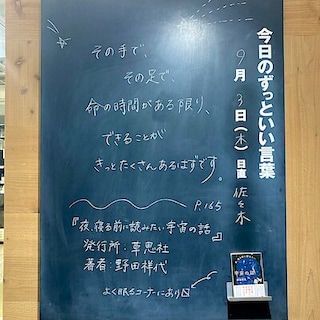 今日のずっといい言葉
9月3日(木)日直 佐々木
その手で、
その足で、
命の時間がある限り、
できることが
きっとたくさんあるはずです。
P.165
『夜、寝る前に読みたい宇宙の話』
発行所:草思社
著者:野田祥代
よく眠るコーナーにあり